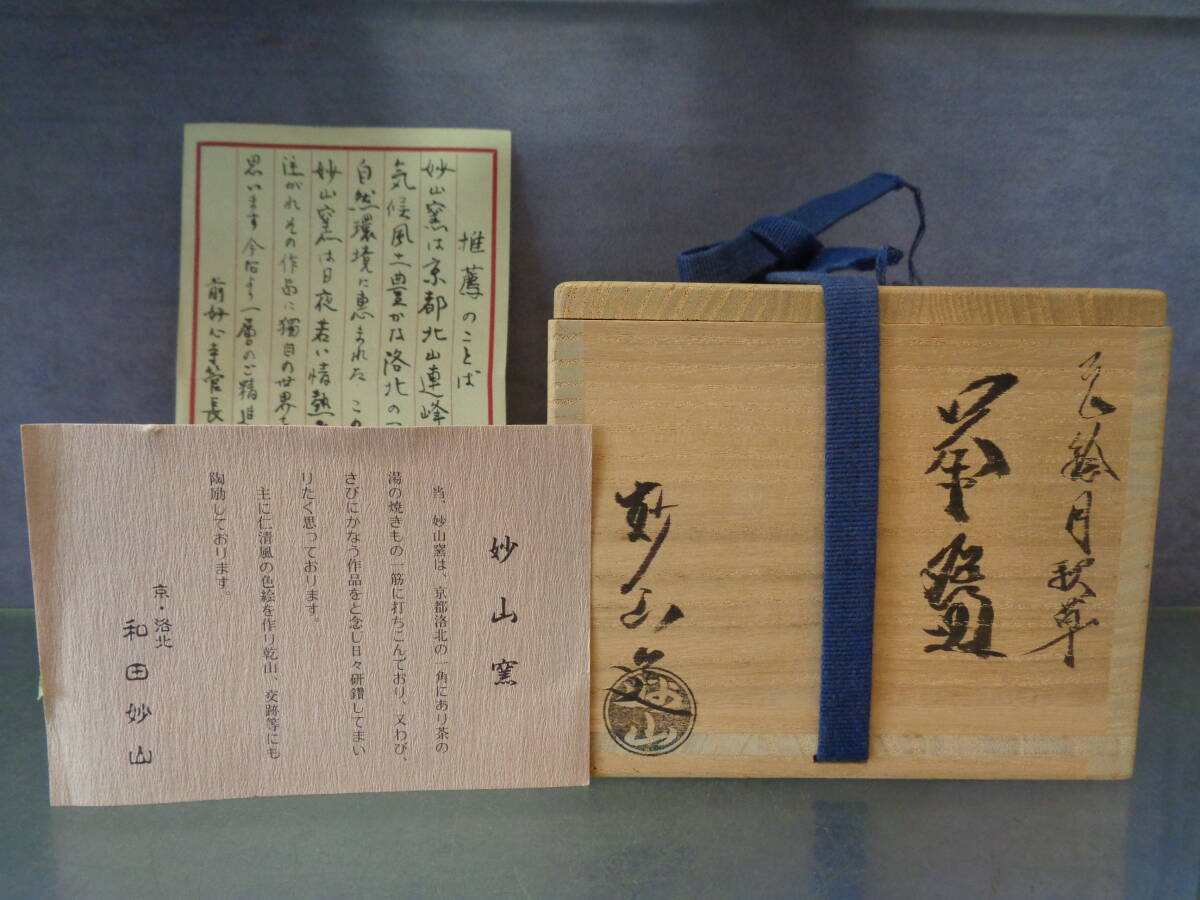 推薦のことば
妙山窯は京都北山連峰
気候風土豊かな洛北の
自然環境に恵まれた この
妙山窯は日夜若い情熱
注がれその作品に獨自の世界を
思います 今后より一層のご精進
前妙心寺管長
妙山窯
当、妙山窯は、京都洛北の一角にあり茶の
湯の焼きもの一筋に打ちこんでおり、又わび、
さびにかなう作品をと念し日々研鑽してまい
りたく思っております。
主に仁清風の色絵を作り乾山、交跡等にも
陶励しております。
京・洛北
和田妙山
色絵月秋草
茶盌
妙山造
妙山